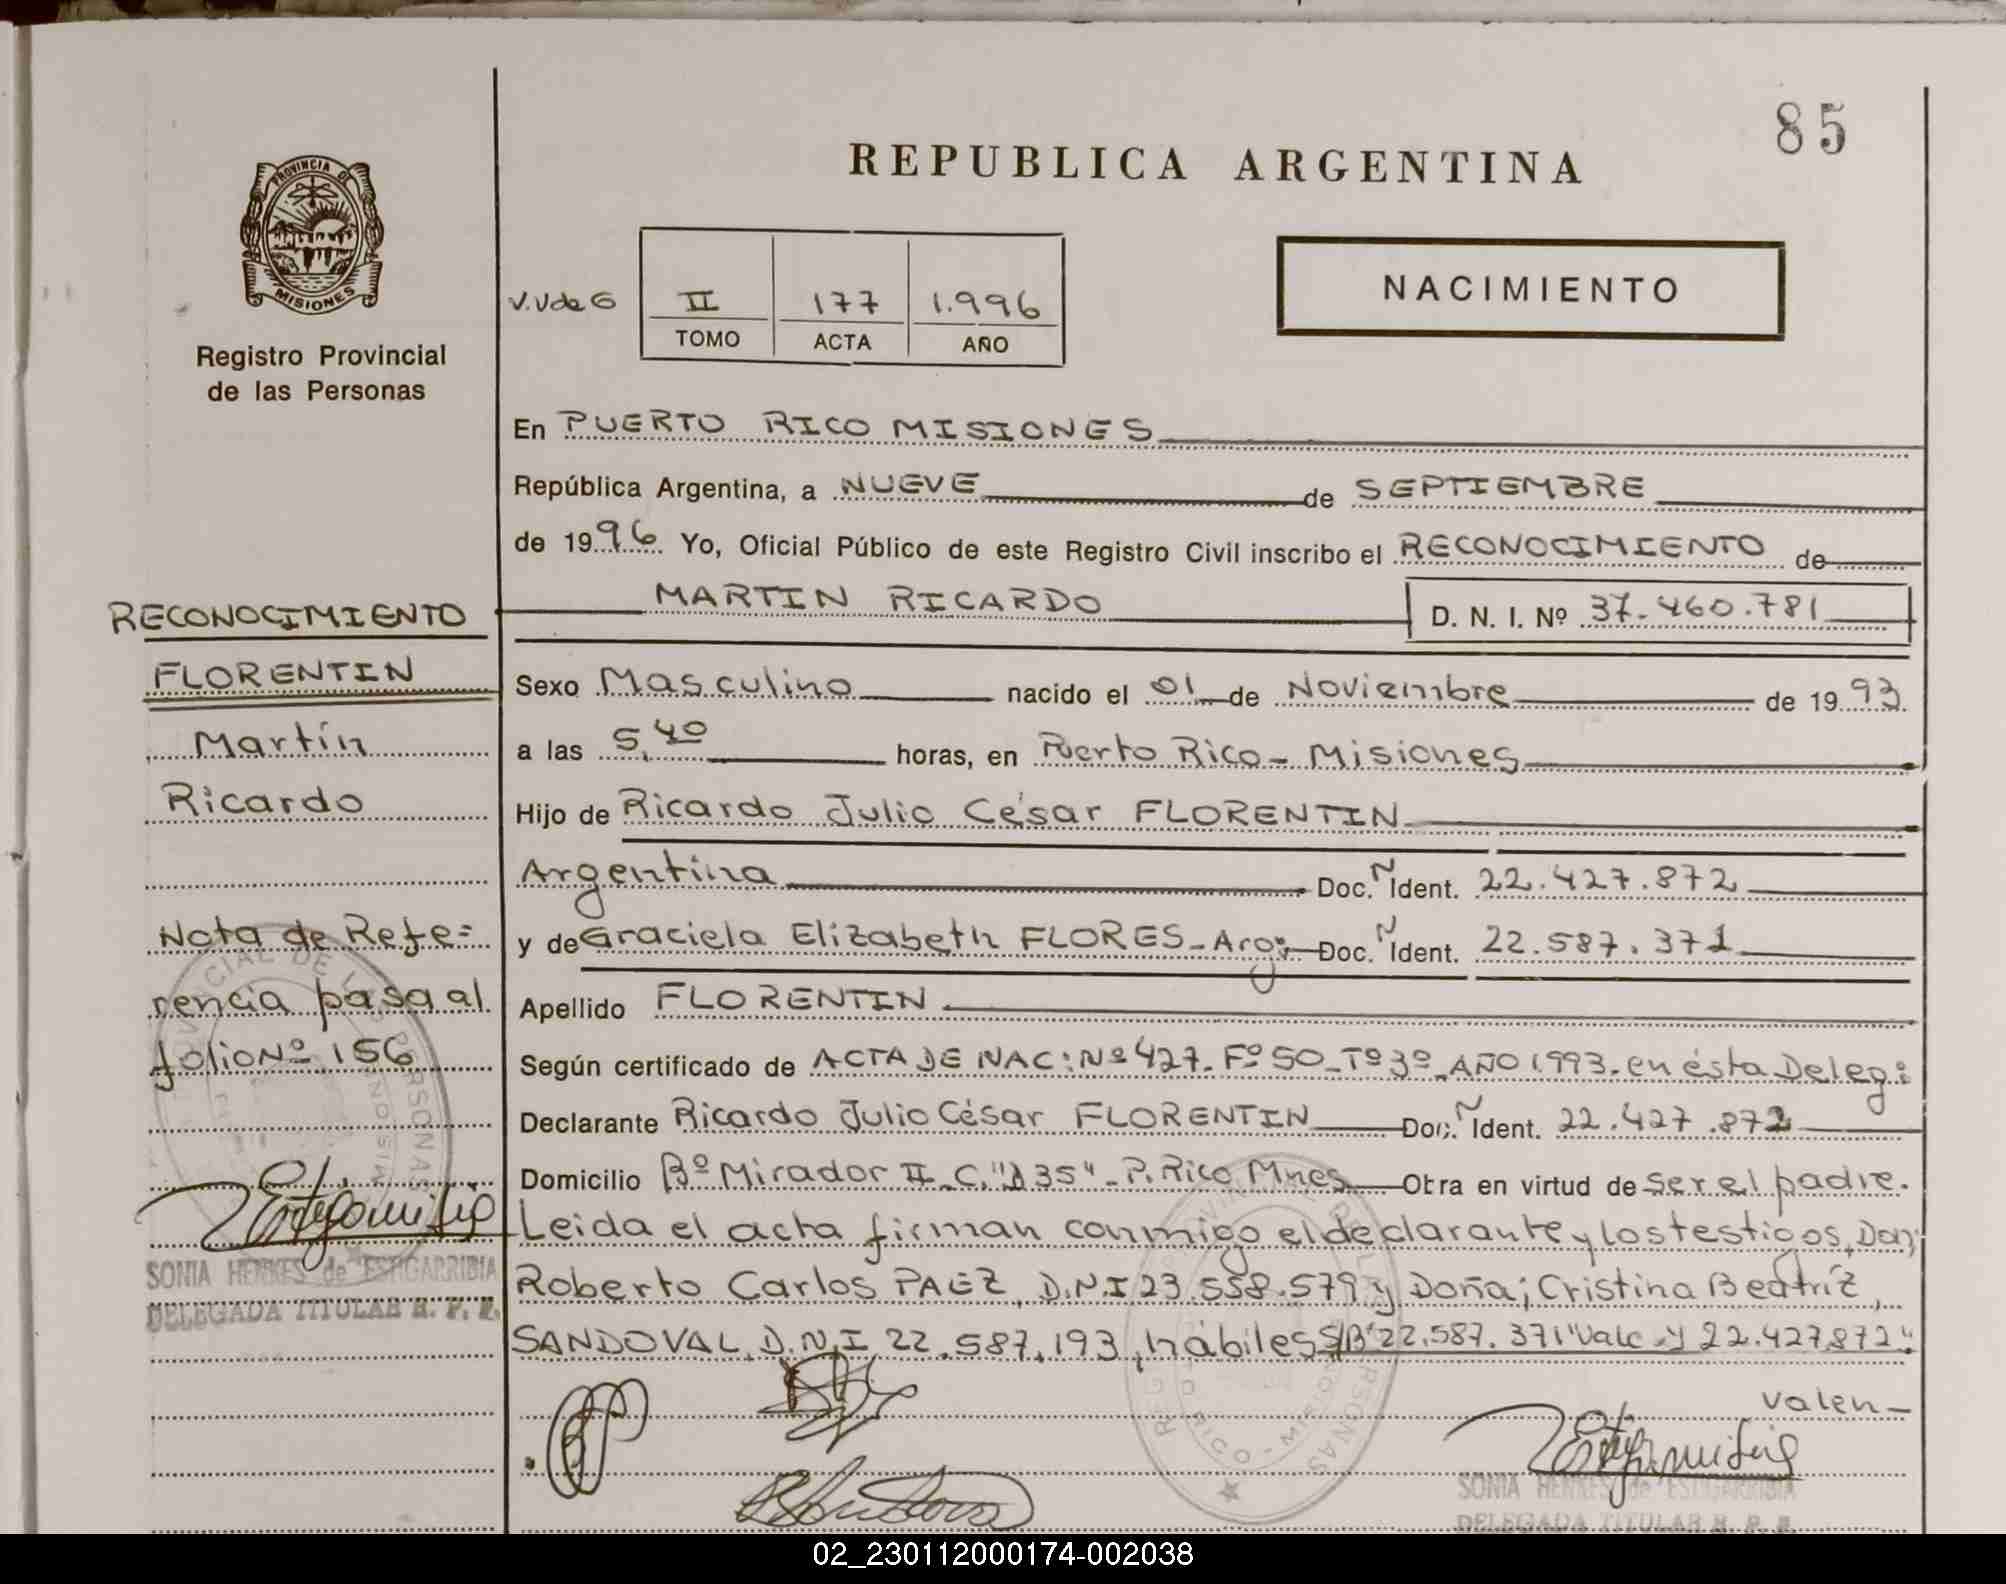 85
REPUBLICA ARGENTINA
PROVINCIA DE
MISIONES
Registro Provincial
de las Personas
V.V de G
II 177 1.996
TOMO ACTA AÑO
NACIMIENTO
En PUERTO RICO MISIONES
República Argentina, a NUEVE de SEPTIEMBRE
de 1996 Yo, Oficial Público de este Registro Civil inscribo el RECONOCIMIENTO de
MARTIN RICARDO D. N. I. Nº 37.460.781
Sexo Masculino nacido el 01 de Noviembre de 1993
a las 5,40 horas, en Puerto Rico - Misiones
Hijo de Ricardo Julio César FLORENTIN
Argentina Doc. N Ident. 22.427.872
y de Graciela Elizabeth FLORES - Arg. Doc. N Ident. 22.587.371
Apellido FLORENTIN
Según certificado de ACTA DE NAC: Nº 427. Fº 50 - Tº 3º - AÑO 1993. en ésta Deleg:
Declarante Ricardo Julio César FLORENTIN Doc. N Ident. 22.427.872
Domicilio Bº Mirador II - C. "A 35" - P. Rico Mnes Otra en virtud de ser el padre.
Leida el acta firman conmigo el declarante y los testigos, Don;
Roberto Carlos PAEZ, D.N.I 23.558.579 y Doña; Cristina Beatríz,
SANDOVAL, D.N.I 22.587.193, hábiles S/B "22.587.371" Vale y 22.427872".
valen-
RECONOCIMIENTO
FLORENTIN
Martín
Ricardo
Nota de Refe=
rencia pasa al
folio Nº 156
SONIA HENKES de ESTIGARRIBIA
DELEGADA TITULAR R. P. P.
SONIA HENKES de ESTIGARRIBIA
DELEGADA TITULAR R. P. P.
02_230112000174-002038